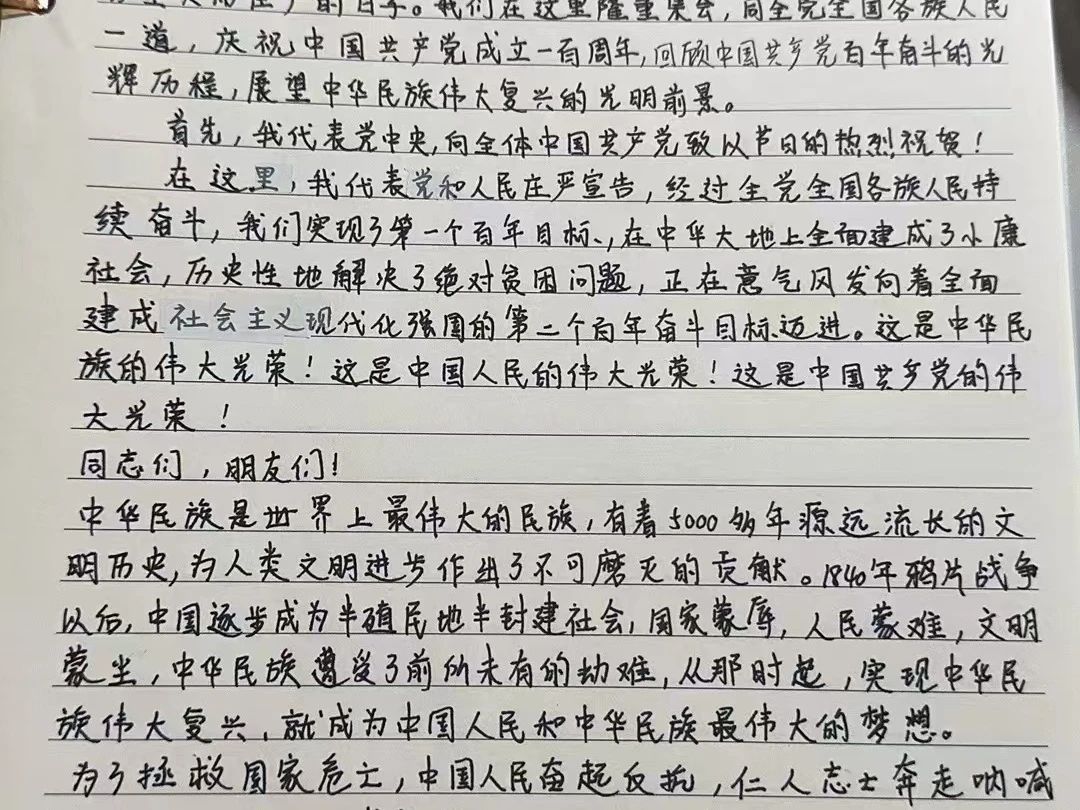 的日子。我们在这里隆重集会,同全党全国各族人民
一道,庆祝中国共产党成立一百周年,回顾中国共产党百年奋斗的光
辉历程,展望中华民族伟大复兴的光明前景。
首先,我代表党中央,向全体中国共产党致以节日的热烈祝贺!
在这里,我代表党和人民庄严宣告,经过全党全国各族人民持
续奋斗,我们实现了第一个百年目标、,在中华大地上全面建成了小康
社会,历史性地解决了绝对贫困问题,正在意气风发向着全面
建成社会主义现代化强国的第二个百年奋斗目标迈进。这是中华民
族的伟大光荣!这是中国人民的伟大光荣!这是中国共产党的伟
大光荣!
同志们,朋友们!
中华民族是世界上最伟大的民族,有着5000多年源远流长的文
明历史,为人类文明进步作出了不可磨灭的贡献。1840年鸦片战争
以后,中国逐步成为半殖民地半封建社会,国家蒙辱,人民蒙难,文明
蒙尘,中华民族遭受了前所未有的劫难,从那时起,实现中华民
族伟大复兴,就成为中国人民和中华民族最伟大的梦想。
为了拯救国家危亡,中国人民奋起反抗,仁人志士奔走呐喊